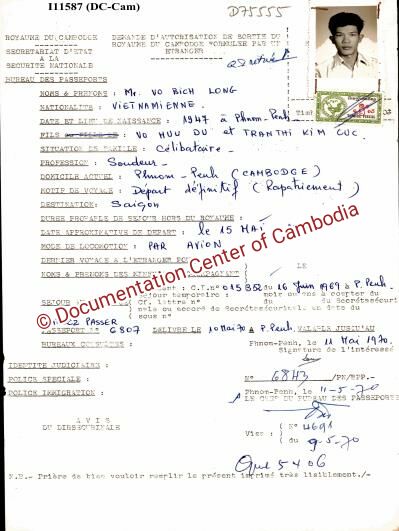 I11587 (DC-Cam)
D75555
ROYAUME DU CAMBODGE
DEMANDE D'AUTORISATION DE SORTIE DU
ROYAUME DU CAMBODGE FORMULEE PAR UN
ETRANGER
SECRETARIAT D'ETAT
A LA
SECURITE NATIONALE
BUREAU DES PASSEPORTS
NOMS & PRENOMS : Mr. VO BICH LONG
NATIONALITE : VIETNAMIENNE.
DATE ET LIEU DE NAISSANCE : 1947 à Phnom-Penh
FILS VO HUU DU et TRAN THI KIM CUC.
SITUATION DE FAMILLE : Célibataire.
PROFESSION : Soudeur.
DOMICILE ACTUEL : Phnom-Penh (CAMBODGE)
MOTIF DE VOYAGE : Départ définitif (Rapatriement)
DESTINATION : Saigon
DUREE PROBABLE DE SEJOUR HORS DU ROYAUME :
DATE APPROXIMATIVE DE DEPART : le 15 MAI
MODE DE LOCOMOTION : PAR AVION
DERNIER VOYAGE A L'ETRANGER
LE
NOMS & PRENOMS DES
C.I. N° 015352 du 16 Juin 1969 à P. Penh.
SEJOUR
© Documentation Center of Cambodia
PASSER
PASSEPORT N° 6807 DELIVRE LE 10 Mai 70 à P. Penh. VALABLE JUSQU'AU
BUREAUX
Phnom-Penh, le 11 Mai 1970.
Signature de l'intéressé
IDENTITE JUDICIAIRE :
POLICE SPECIALE :
POLICE IMMIGRATION :
N° 6843 /PN/BPP.-
Phnom-Penh, le 11-5-70
LE CHEF DU BUREAU DES PASSEPORTS
A V I S
DU DIRSECURINALE
Visa : ( N° 4691
( du 9-5-70
5406
N.B.- Prière de bien vouloir remplir le présent imprimé très lisiblement./-